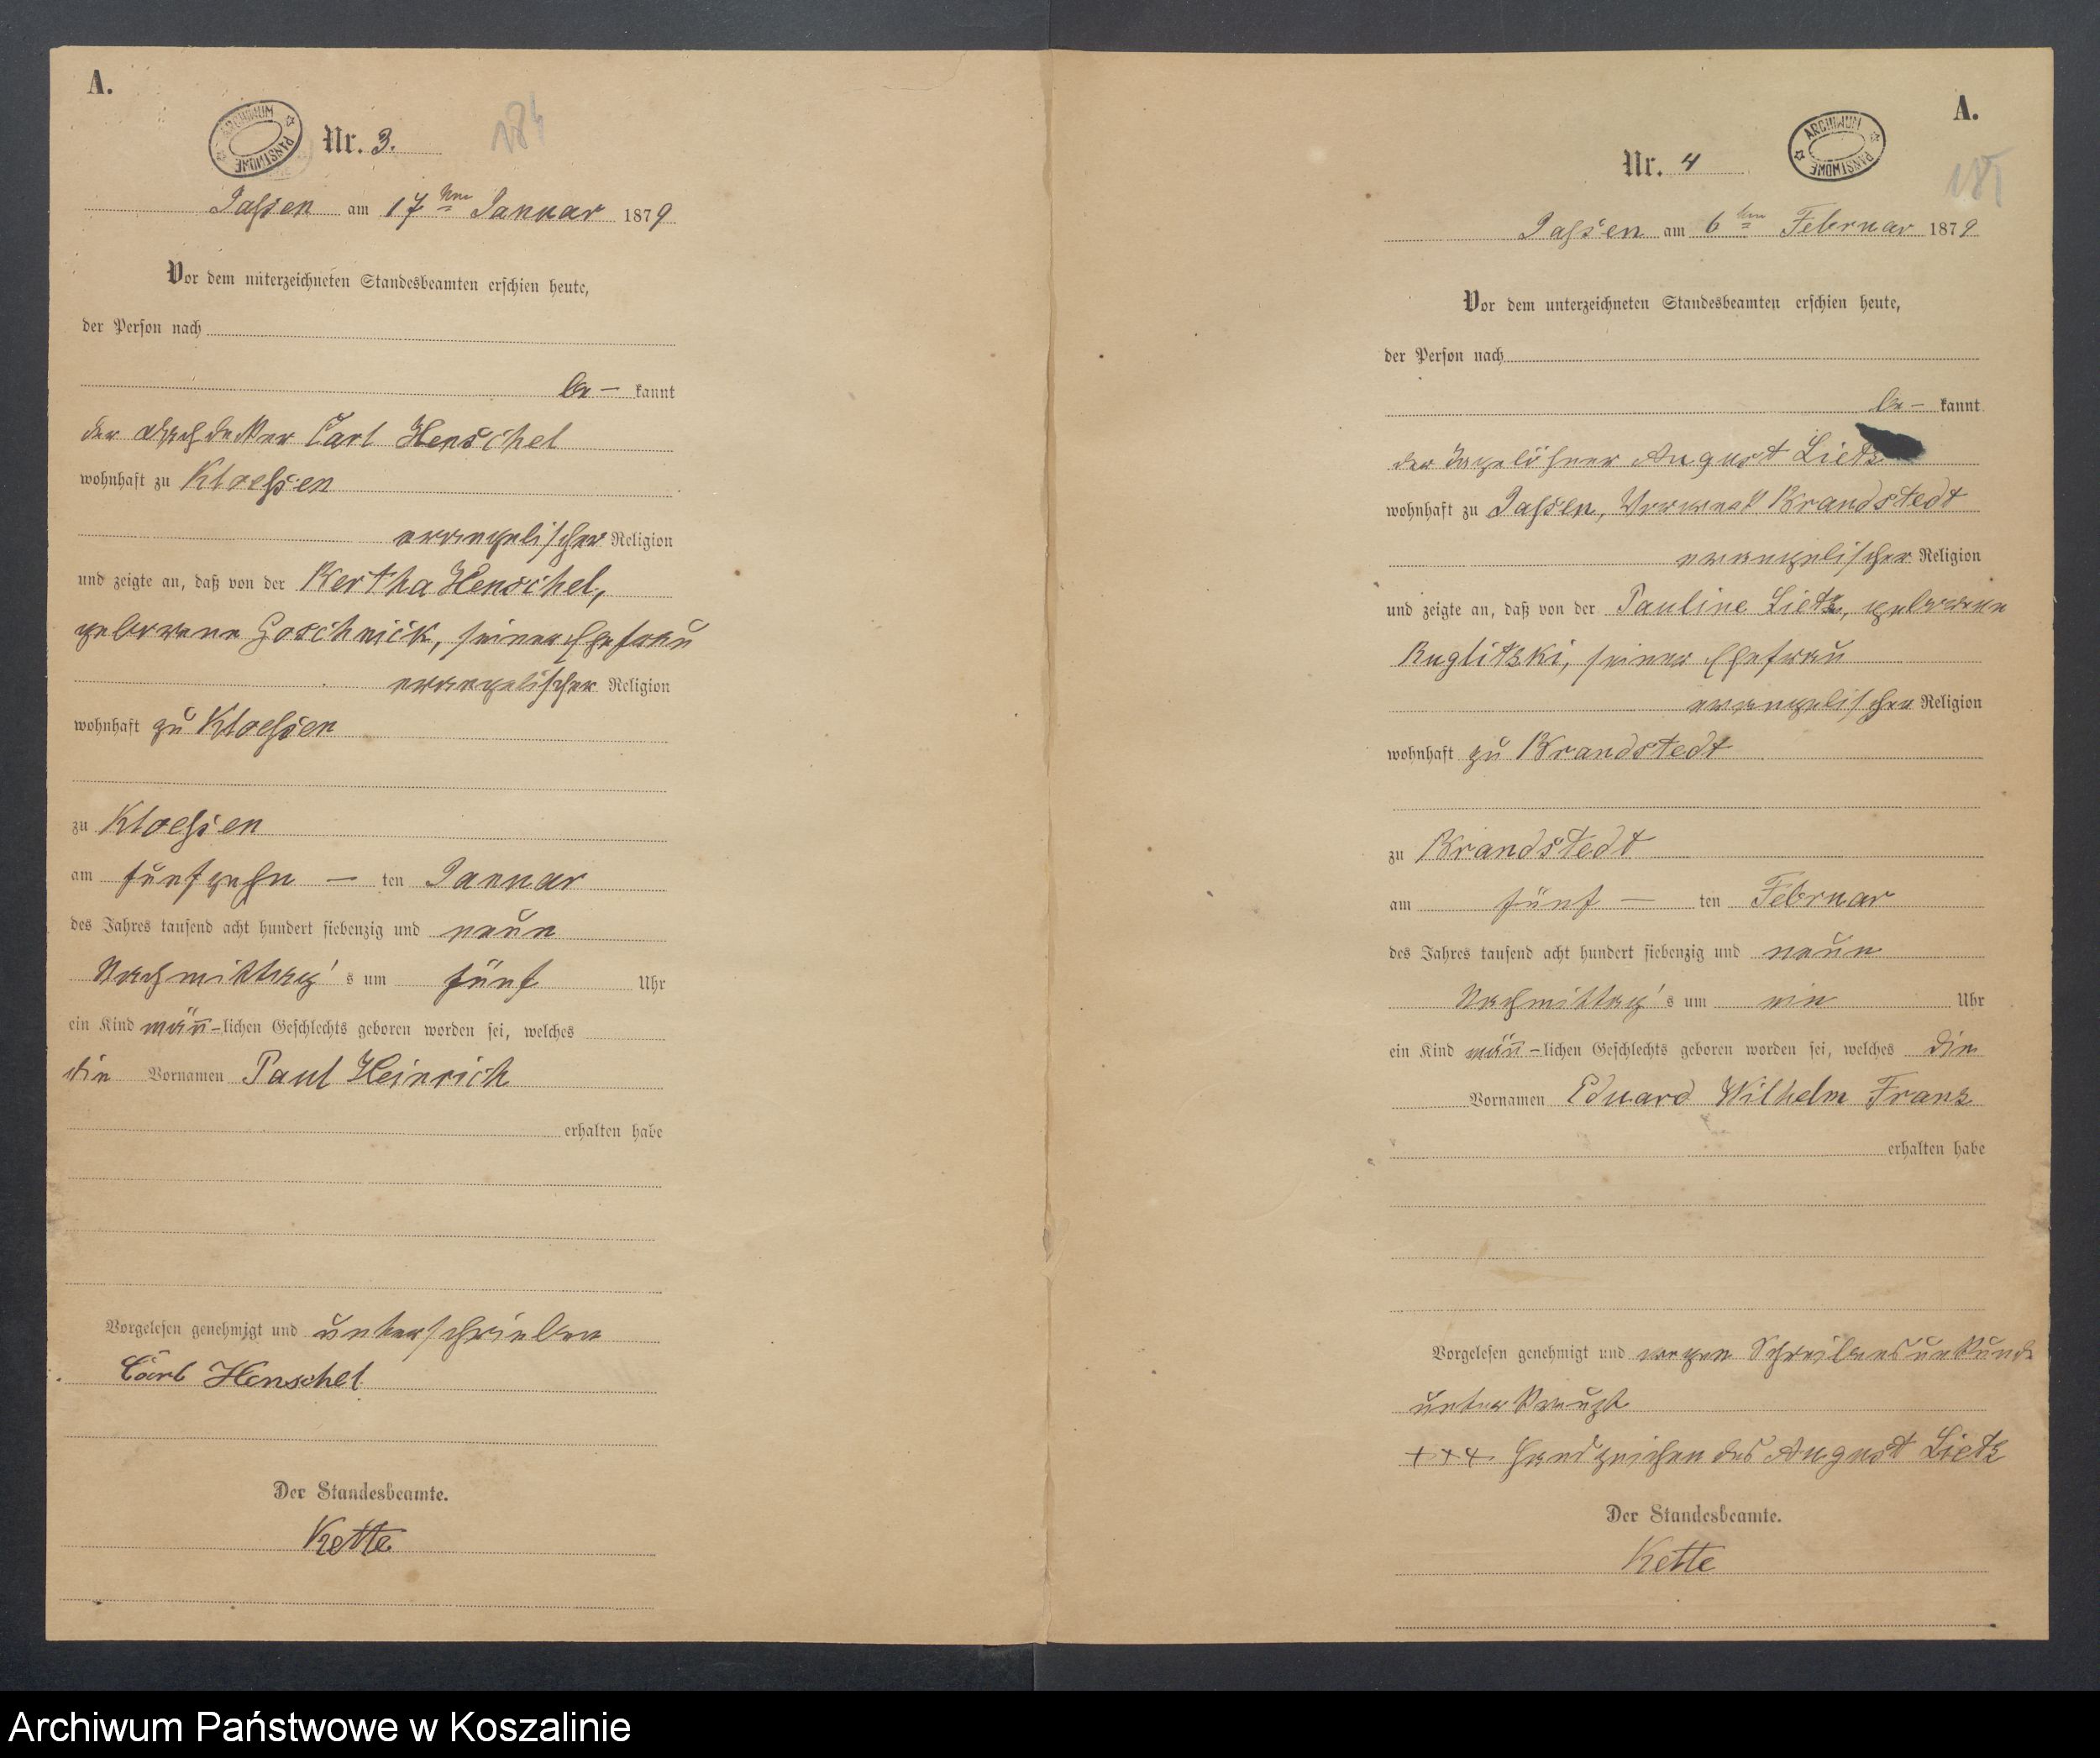 A.
ARCHIWUM PAŃSTWOWE
Nr. 3.
184
Jassen am 17ten Januar 1879
Vor dem unterzeichneten Standesbeamten erschien heute,
der Person nach
be- kannt
der Dachdecker Carl Henschel
wohnhaft zu Kloessen
evangelischer Religion
und zeigte an, daß von der Bertha Henschel,
geborene Goschnick, seiner Ehefrau
evangelischer Religion
wohnhaft zu Kloessen
zu Kloessen
am fünfzehn — ten Januar
des Jahres tausend acht hundert siebenzig und neun
Nachmittag's um fünf Uhr
ein Kind män̄-lichen Geschlechts geboren worden sei, welches
die Vornamen Paul Heinrich
erhalten habe
Vorgelesen genehmigt und unterschrieben
Carl Henschel
Der Standesbeamte.
Kette
A.
ARCHIWUM PAŃSTWOWE
Nr. 4
185
Jassen am 6ten Februar 1879
Vor dem unterzeichneten Standesbeamten erschien heute,
der Person nach
be- kannt
der Tagelöhner August Lietz
wohnhaft zu Jassen, Vorwerk Brandstedt
evangelischer Religion
und zeigte an, daß von der Pauline Lietz, geborene
Ruglitzki, seiner Ehefrau
evangelischer Religion
wohnhaft zu Brandstedt
zu Brandstedt
am fünf — ten Februar
des Jahres tausend acht hundert siebenzig und neun
Nachmittag's um ein Uhr
ein Kind män̄-lichen Geschlechts geboren worden sei, welches die
Vornamen Eduard Wilhelm Franz
erhalten habe
Vorgelesen genehmigt und wegen Schreibensunkunde
unterkreuzt
+++ Handzeichen des August Lietz
Der Standesbeamte.
Kette
Archiwum Państwowe w Koszalinie